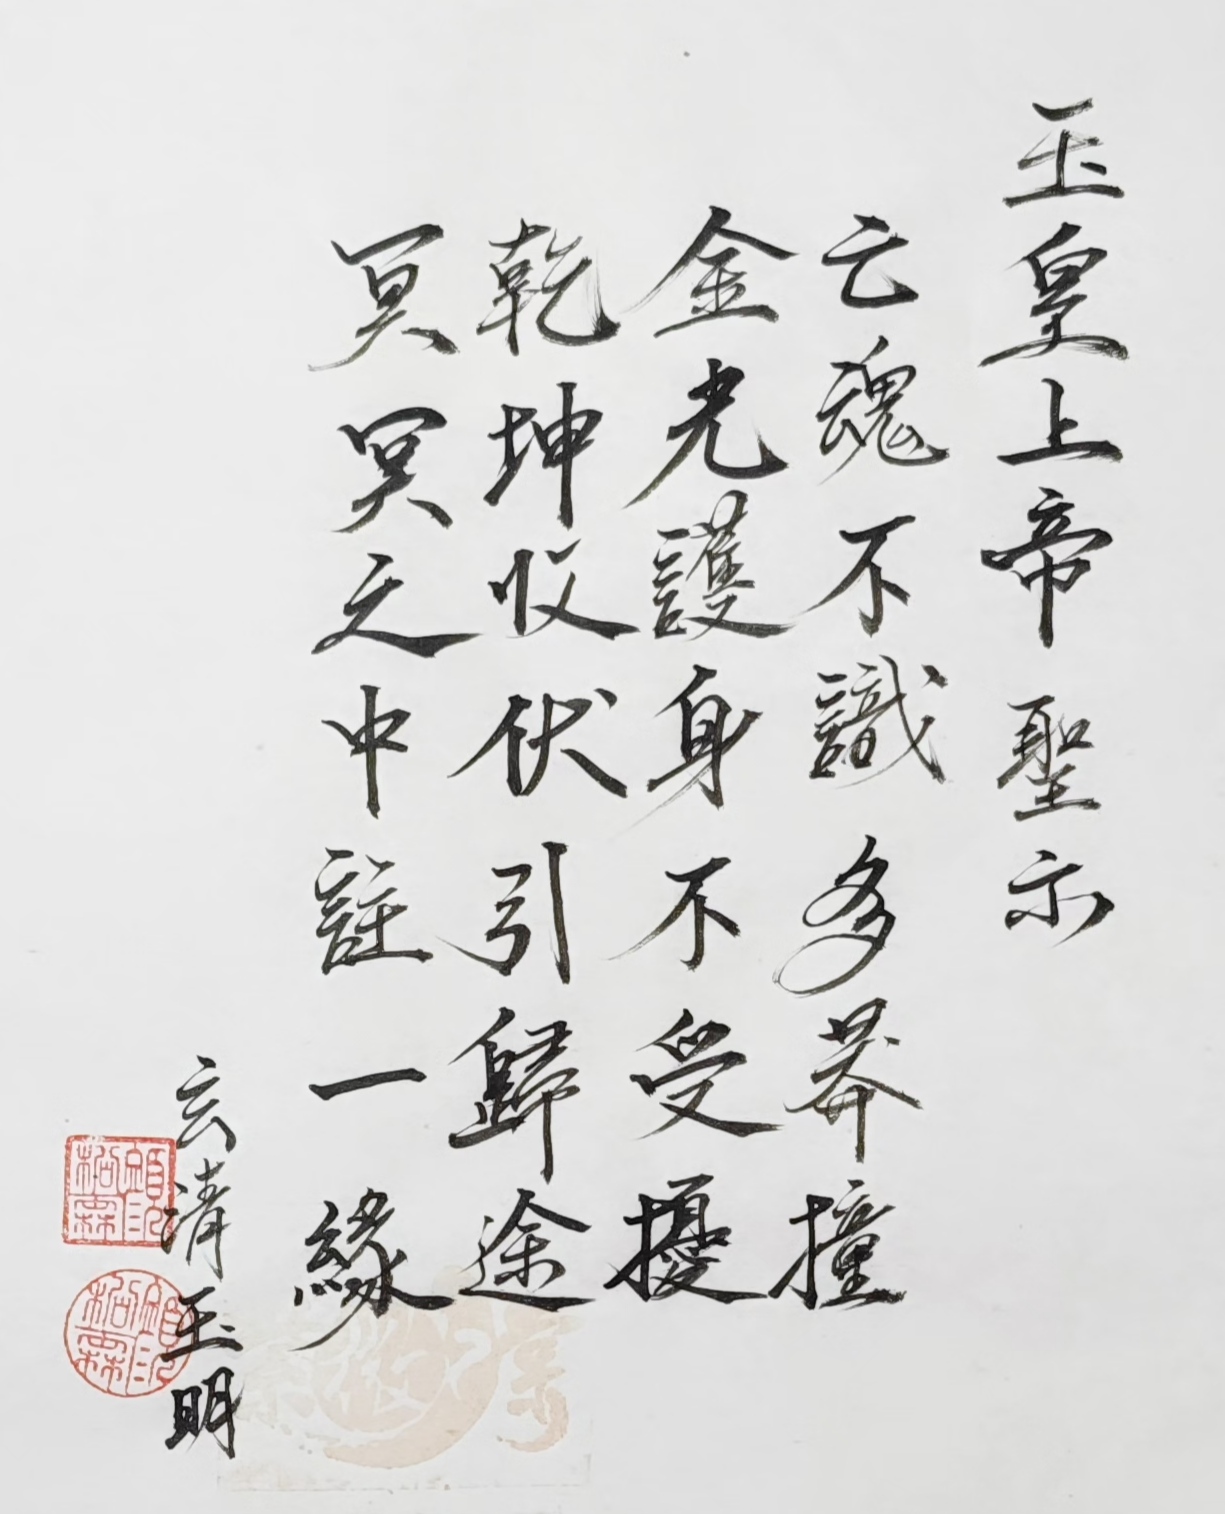 玉皇上帝 聖示
亡魂不識多莽撞
金光護身不受擾
乾坤收伏引歸途
冥冥之中註一緣
玄清玉明